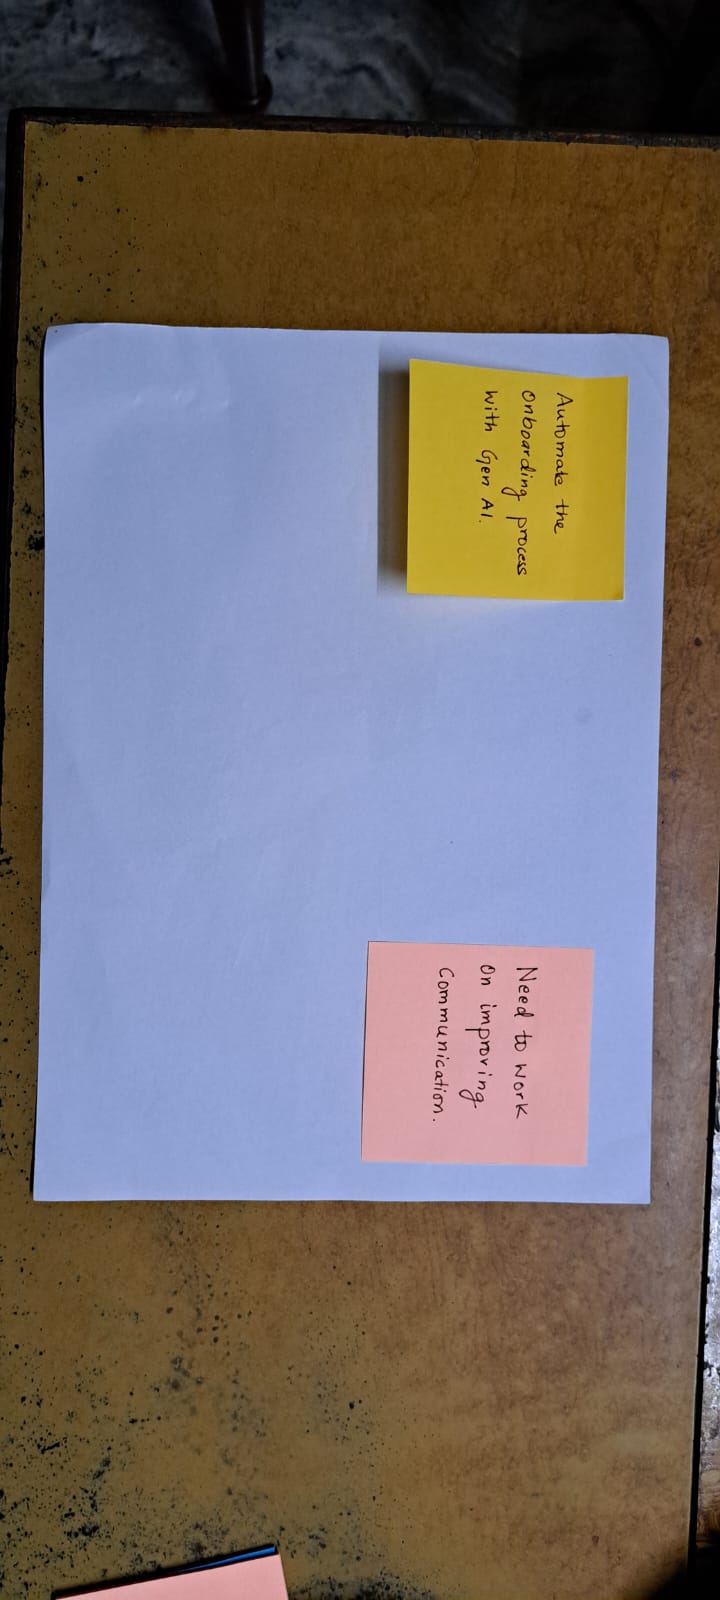 Automate the
Onboarding process
with Gen AI.
Need to work
On improving
Communication.